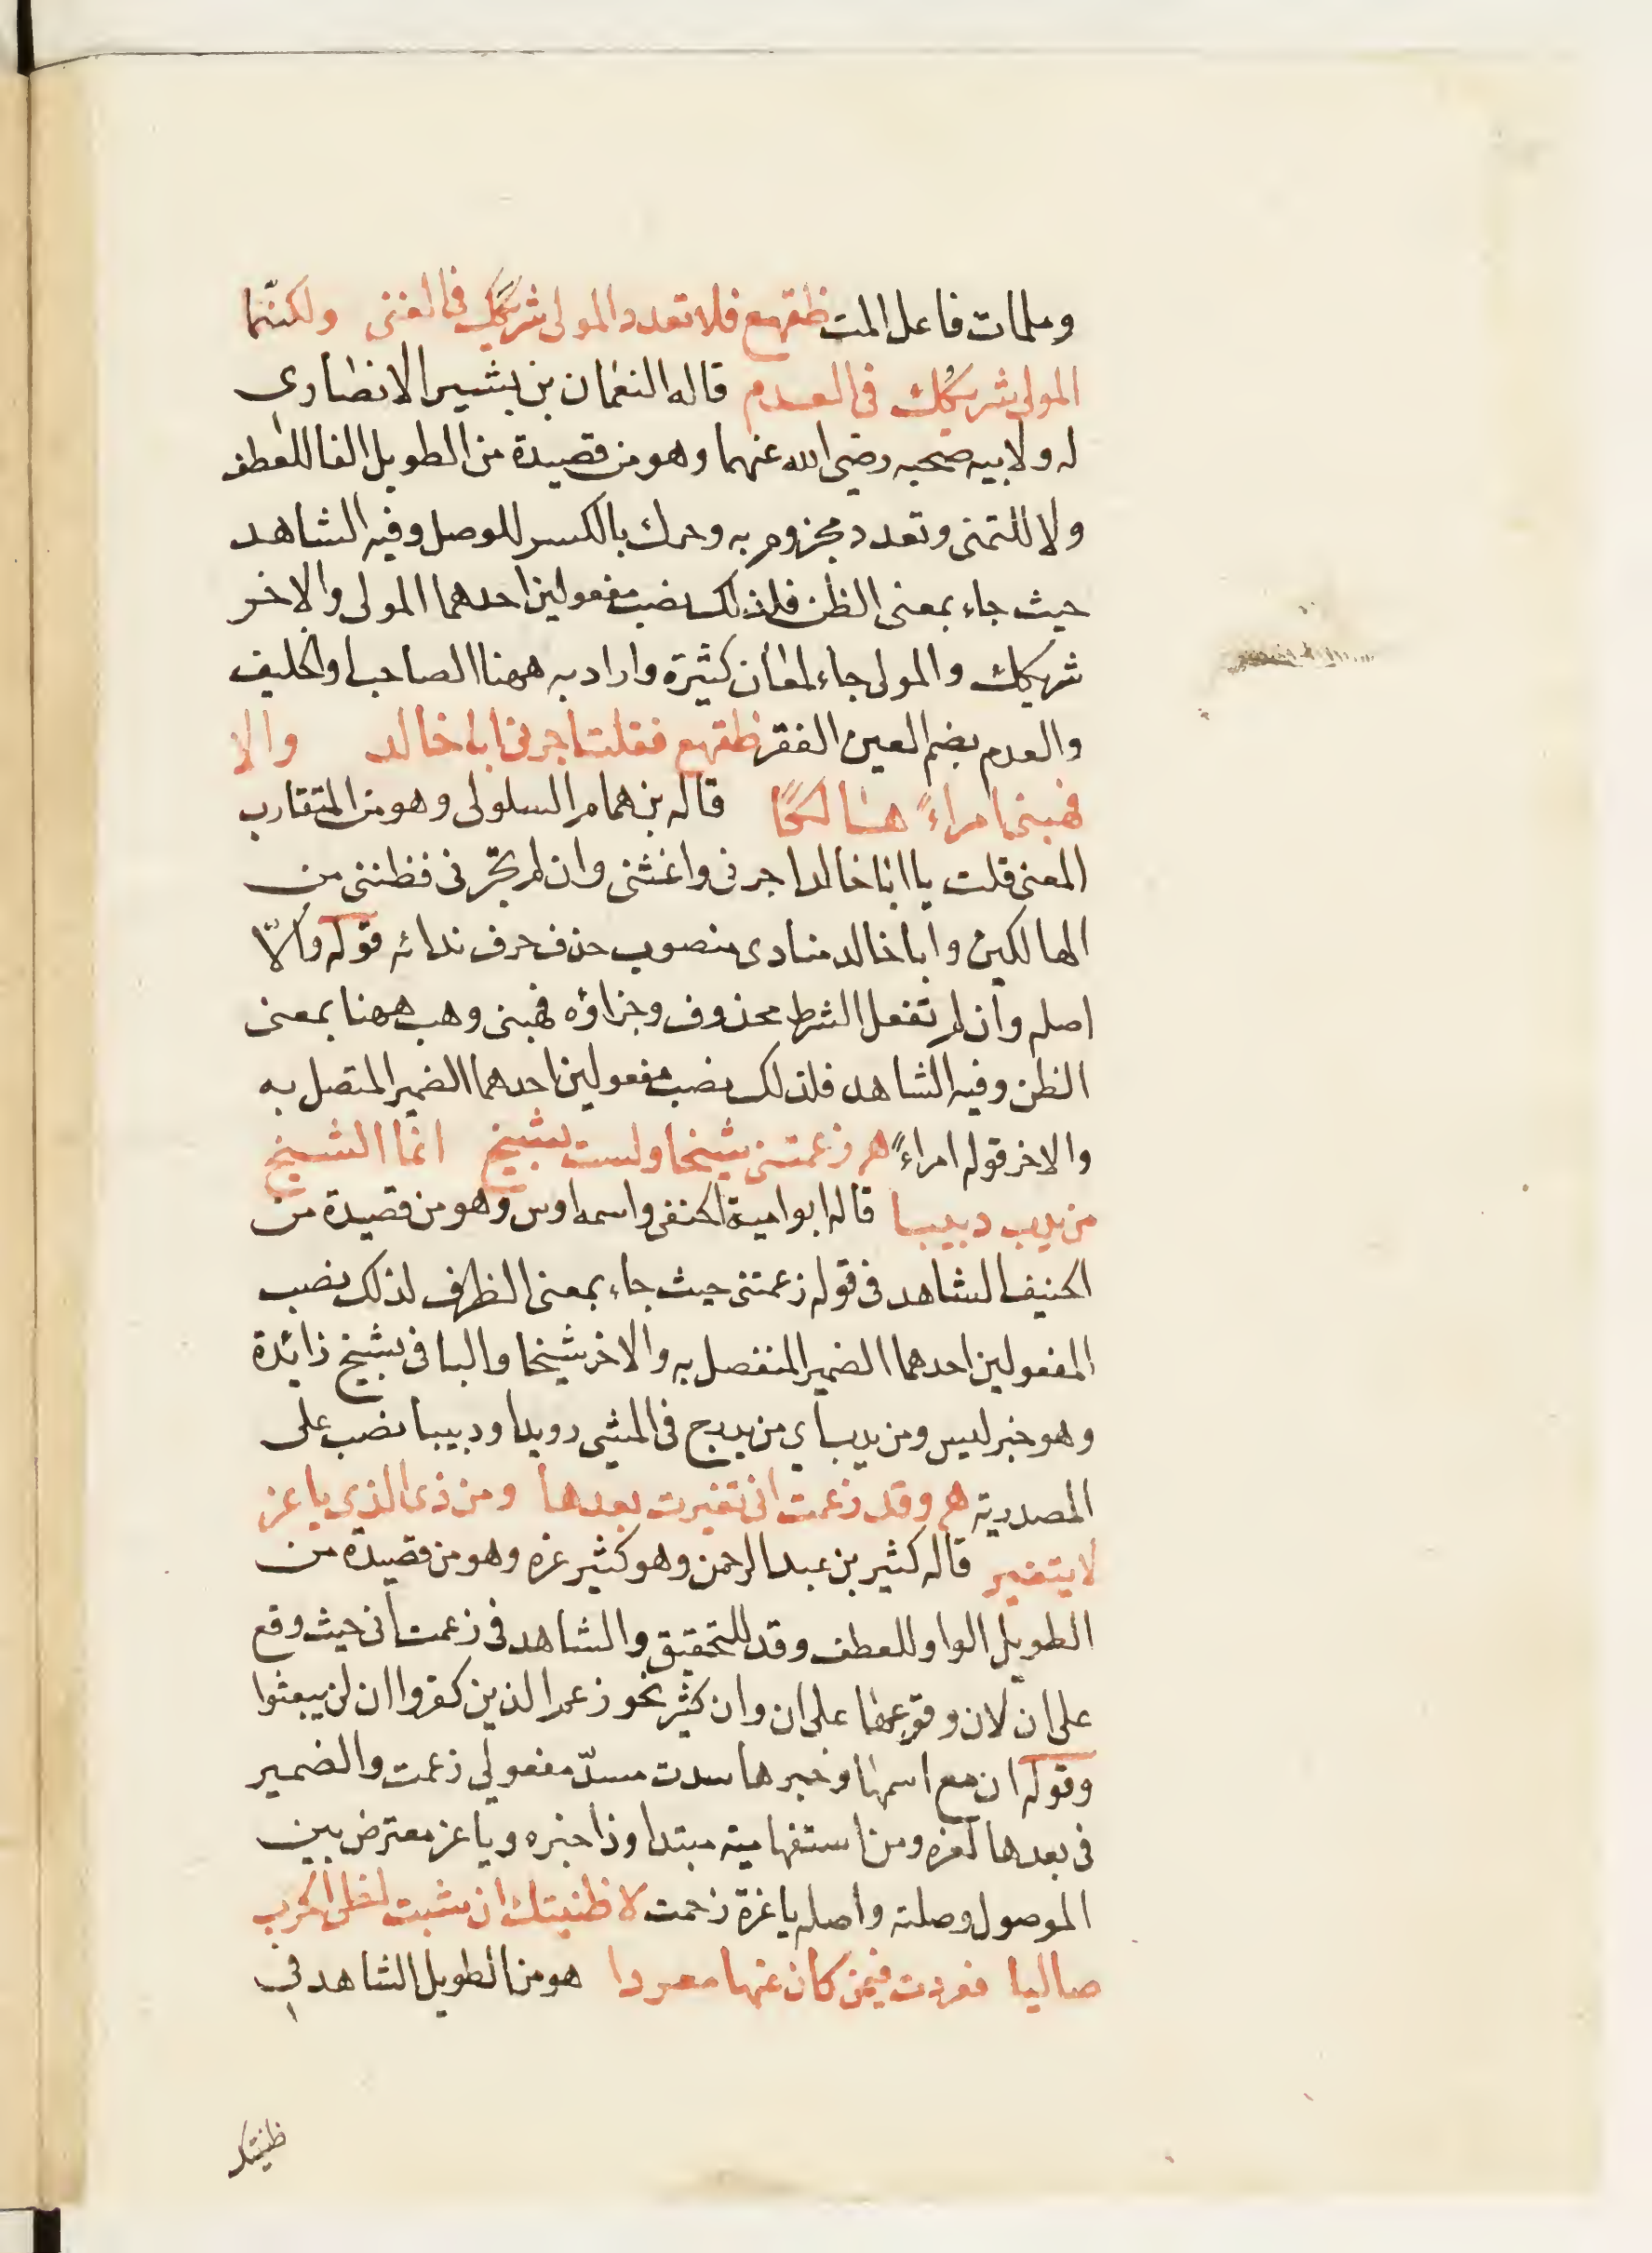 وملمات فاعل المت ظقهع فلا تعدد المولى شريكك في الغنى ولكنّما
المولى شريكك في العدم قاله النعمان بن بشير الانصاري
له ولابيه صحبه رضي الله عنهما وهو من قصيدة من الطويل الفا للعطف
ولا للتمنى وتعدد مجزوم به وحرك بالكسر للوصل وفيه الشاهد
حيث جاء بمعنى الظن فلذلك نصب مفعولين احدهما المولى والاخر
شريكك والمولى جاء لمعان كثيرة واراد به ههنا الصاحب او الحليف
والعدم بضم العين الفقر ظقهع فقلت اجرني ابا خالد والا
فهبني امراءً هالكًا قاله بن همام السلولي وهو من المتقارب
المعنى قلت يا ابا خالد اجرني واغثني وان لم تجرني فظنني من
الهالكين وابا خالد منادى منصوب حذف حرف ندائه قوله والاّ
اصله وان لم تفعل الشرط محذوف وجزاؤه فهبني وهب ههنا بمعنى
الظن وفيه الشاهد فلذلك نصب مفعولين احدهما الضمير المتصل به
والاخر قوله امراءً هم زعمتني شيخا ولست بشيخ انما الشيخ
من يدب دبيبا قاله ابو امية الحنفي واسمه اوس وهو من قصيدة من
الخفيف الشاهد في قوله زعمتني حيث جاء بمعنى الظن لذلك نصب
المفعولين احدهما الضمير المنفصل به والاخر شيخا والبا في بشيخ زائدة
وهو خبر ليس ومن يدب اي من يدرج في المشي رويدا ودبيبا نصب على
المصدرية هم وقد زعمت اني تغيرت بعدها ومن ذا الذي يا عز
لا يتغير قاله كثير بن عبد الرحمن وهو كثير عزه وهو من قصيدة من
الطويل الواو للعطف وقد للتحقيق والشاهد في زعمت اني حيث وقع
على ان لان وقوعها على ان وان كثير نحو زعم الذين كفروا ان لن يبعثوا
وقوله ان مع اسمها وخبرها سدت مسدّ مفعولي زعمت والضمير
في بعدها لعزه ومن استفهامية مبتدا وذا خبره ويا عز معترض بين
الموصول وصلته واصله يا عزة زحمت لا ظننتك ان شبت لظى الحرب
صاليا فعردت فيمن كان عنها معردا هو من الطويل الشاهد في
ظننتك